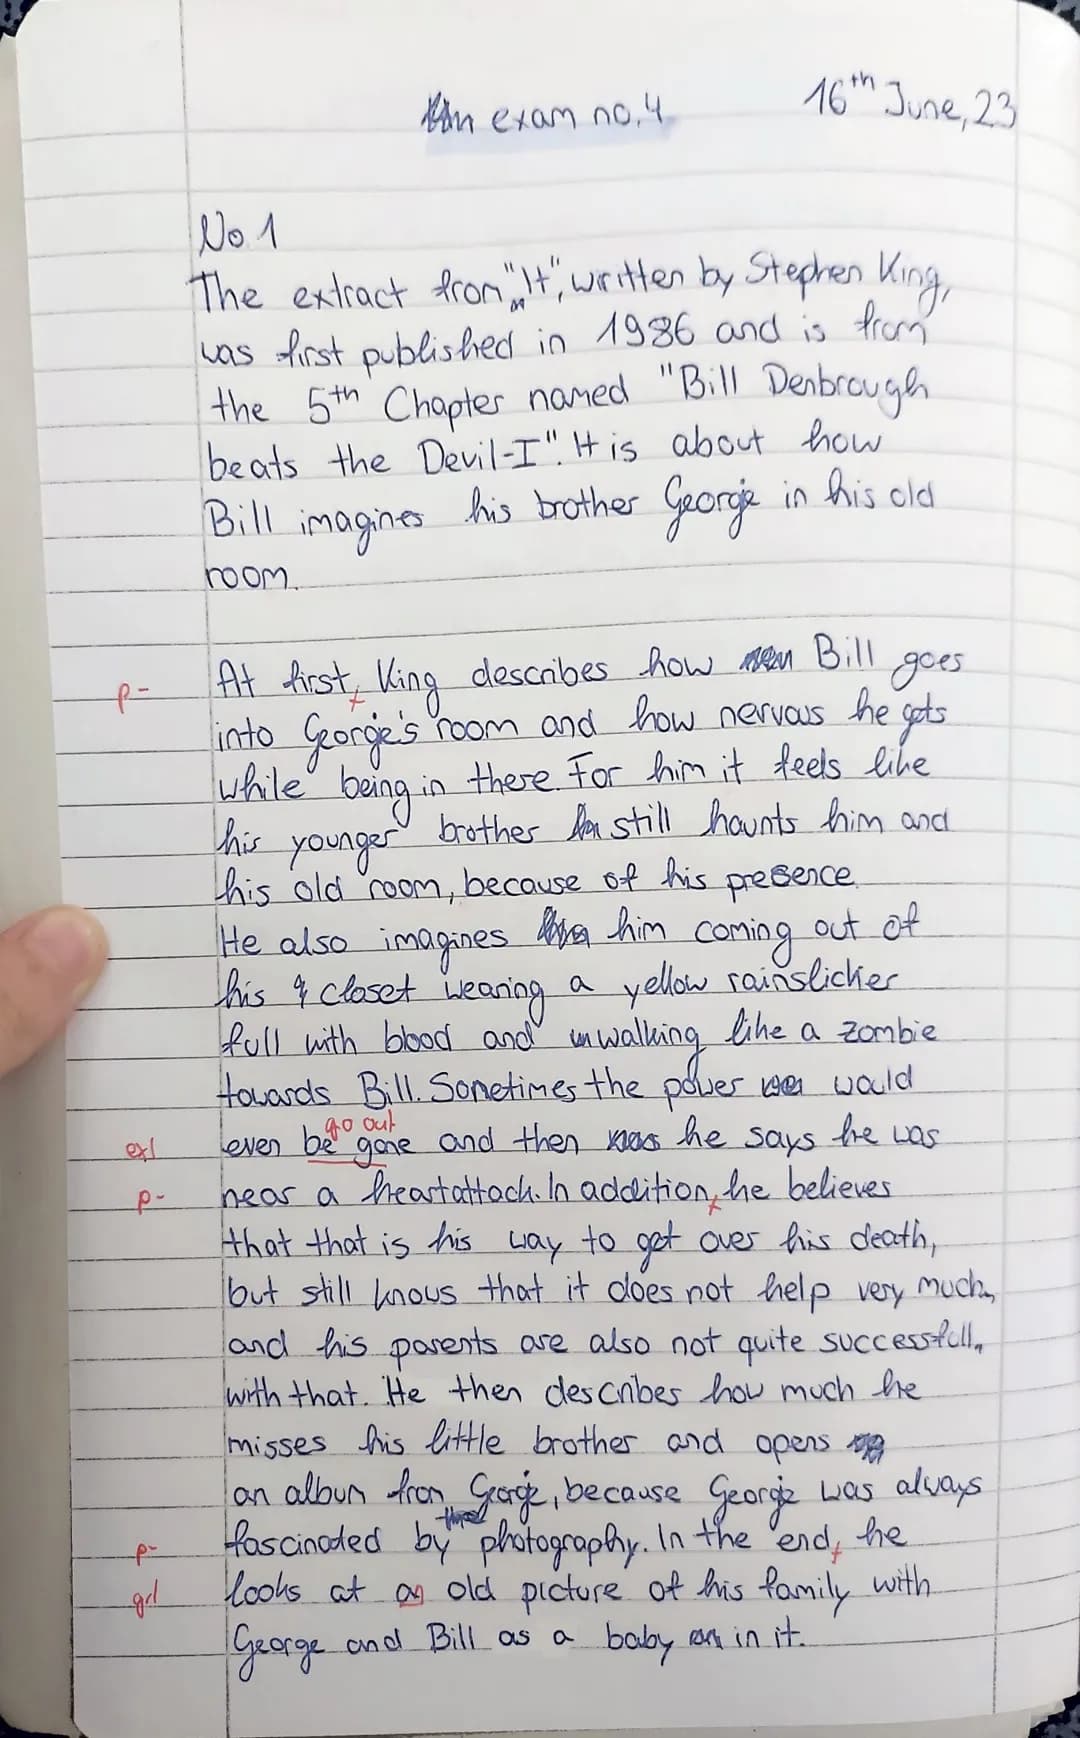 exam no. 4
16th June, 23
No. 1
The extract from "It", written by Stephen King,
was first published in 1986 and is from
the 5th Chapter named "Bill Denbrough
beats the Devil-I". It is about how
Bill imagines his brother Georgie in his old
room.
p- At first, King describes how Bill goes
into Georgie's room and how nervous he gets
while being in there. For him it feels like
his younger brother still haunts him and
his old room, because of his presence.
He also imagines him coming out of
his closet wearing a yellow rainslicker
full with blood and walking like a zombie
towards Bill. Sometimes the power would
go out
exl even be gone and then he says he was
p- near a heartattack. In addition, he believes
that that is his way to get over his death,
but still knows that it does not help very much,
and his parents are also not quite successfull,
with that. He then describes how much he
misses his little brother and opens
an album from Georgie, because Georgie was always
p- fascinated by photography. In the end, he
grl looks at an old picture of his family with
George and Bill as a baby in it.